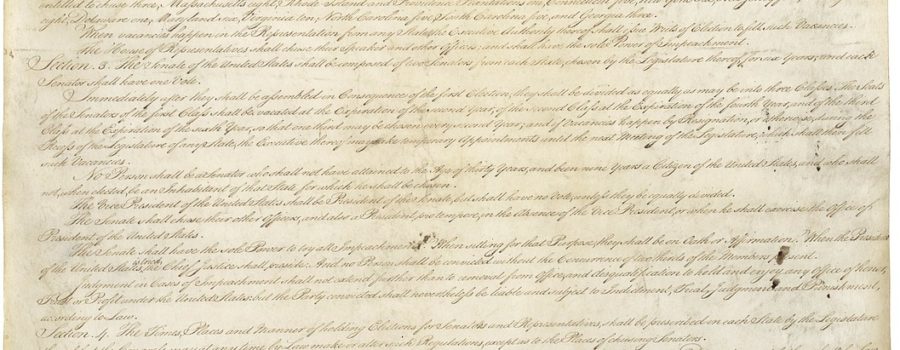 entitled to chuse three, Massachusetts eight, Rhode Island and Providence Plantations one, Connecticut five, New York
eight, Delaware one, Maryland six, Virginia ten, North Carolina five, South Carolina five, and Georgia three.
When vacancies happen in the Representation from any State, the Executive Authority thereof shall issue Writs of Election to fill such Vacancies.
The House of Representatives shall chuse their Speaker and other Officers; and shall have the sole Power of Impeachment.
Section. 3. The Senate of the United States shall be composed of two Senators from each State, chosen by the Legislature thereof, for six Years; and each
Senator shall have one Vote.
Immediately after they shall be assembled in Consequence of the first Election, they shall be divided as equally as may be into three Classes. The Seats
of the Senators of the first Class shall be vacated at the Expiration of the second Year, of the second Class at the Expiration of the fourth Year, and of the third
Class at the Expiration of the sixth Year, so that one third may be chosen every second Year; and if Vacancies happen by Resignation, or otherwise, during the
Recess of the Legislature of any State, the Executive thereof may make temporary Appointments until the next Meeting of the Legislature, which shall then fill
such Vacancies.
No Person shall be a Senator who shall not have attained to the Age of thirty Years, and been nine Years a Citizen of the United States, and who shall
not, when elected, be an Inhabitant of that State for which he shall be chosen.
The Vice President of the United States shall be President of the Senate, but shall have no Vote, unless they be equally divided.
The Senate shall chuse their other Officers, and also a President pro tempore, in the Absence of the Vice President, or when he shall exercise the Office of
President of the United States.
The Senate shall have the sole Power to try all Impeachments. When sitting for that Purpose, they shall be on Oath or Affirmation. When the President
of the United States is tried, the Chief Justice shall preside: And no Person shall be convicted without the Concurrence of two thirds of the Members present.
Judgment in Cases of Impeachment shall not extend further than to removal from Office, and disqualification to hold and enjoy any Office of honor,
Trust or Profit under the United States: but the Party convicted shall nevertheless be liable and subject to Indictment, Trial, Judgment and Punishment,
according to Law.
Section. 4. The Times, Places and Manner of holding Elections for Senators and Representatives, shall be prescribed in each State by the Legislature
at any time by Law make or alter such Regulations, except as to the Places of chusing Senators.